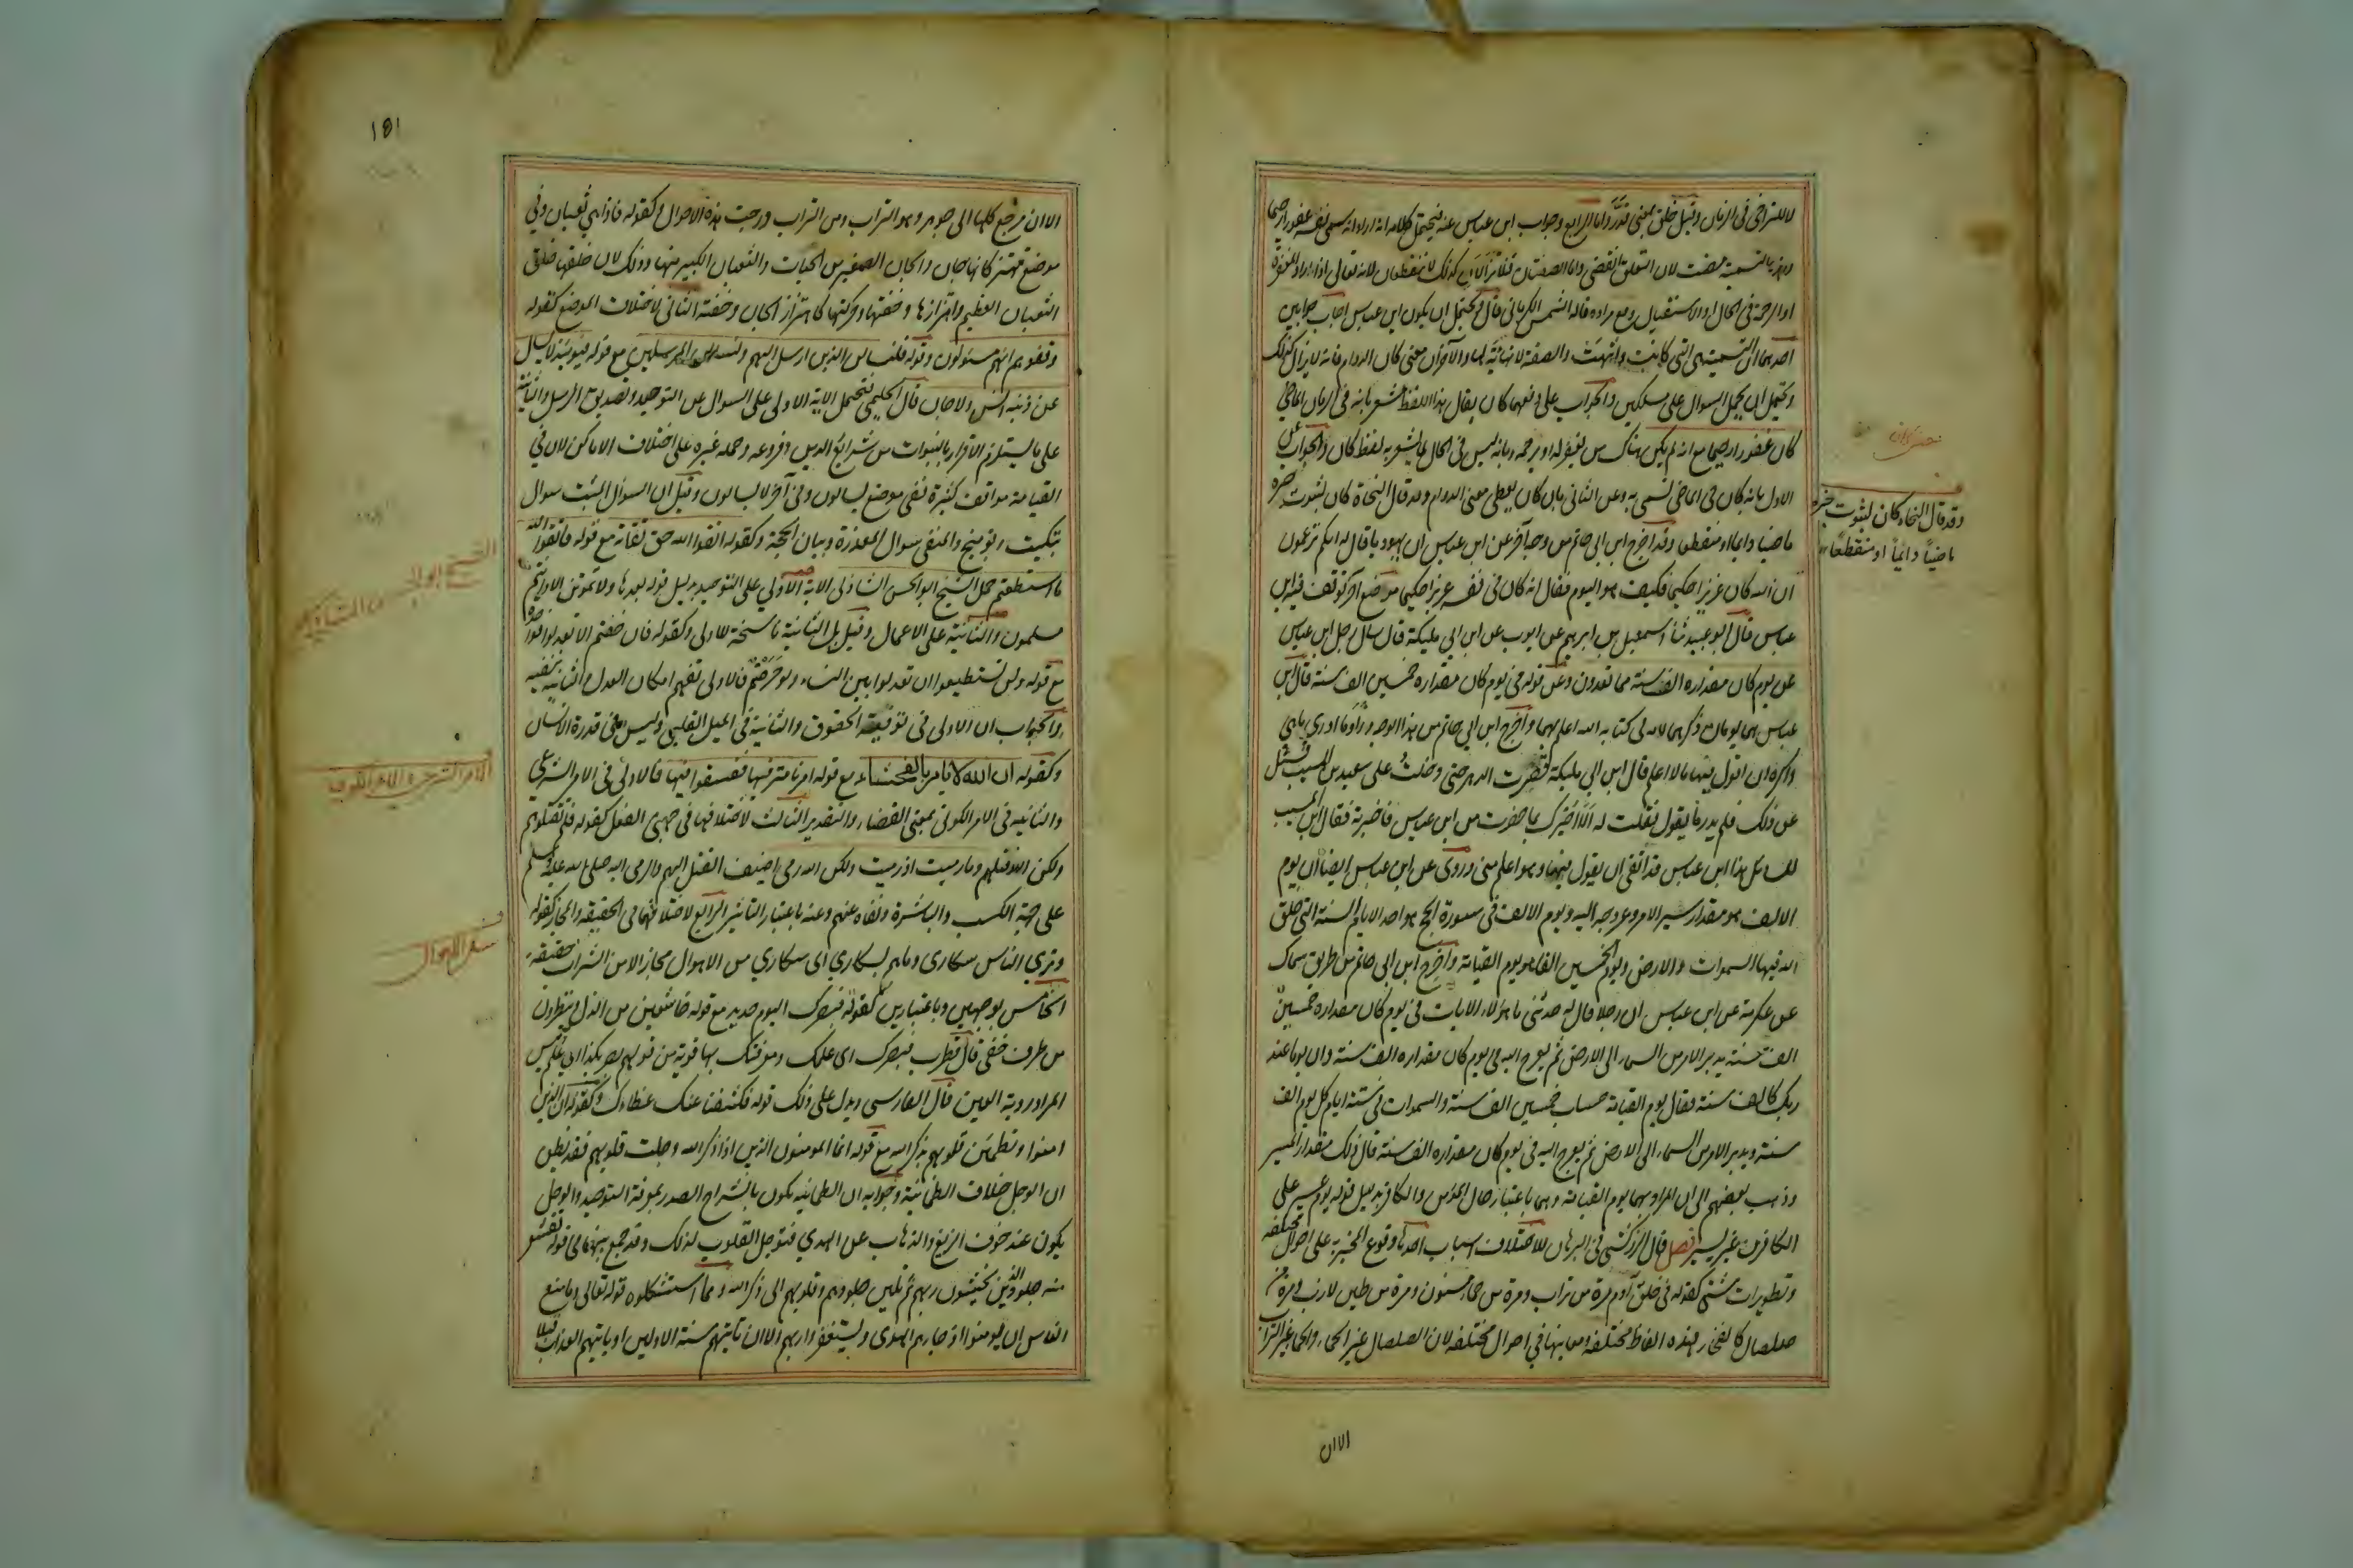 للتراخي في الزمان وقيل خلق بمعنى قدر واما الرابع وجواب ابن عباس عنه فيحتمل كلامه انه اراد انه سمى نفسه غفورا رحيما
وهذه التسمية مضت لان التعلق انقضى واما الصفتان فلا تزالان كذلك لا ينقطعان لانه تعالى اذا اراد المغفرة
او الرحمة في الحال او الاستقبال وقع مراده قاله الشمس الكرماني قال ويحتمل ان يكون ابن عباس اجاب جوابين
احدهما ان التسمية هي التي كانت وانتهت والصفة لا نهاية لها والآخر ان معنى كان الدوام فانه لا يزال كذلك
ويحتمل ان يحمل السوال على مسلكين والجواب على دفعهما كان يقال هذا اللفظ مشعر بانه في الزمان الماضي
كان غفورا رحيما مع انه لم يكن هناك من يغفر له او يرحمه وبانه ليس في الحال كما يشعر به لفظ كان والجواب عن
الاول بانه كان في الماضي تسمى به وعن الثاني بان كان يعطى معنى الدوام وقد قال النحاة كان لثبوت خبره
ماضيا دايما او منقطعا وقد اخرج ابن ابي حاتم من وجه آخر عن ابن عباس ان يهوديا قال له انكم تزعمون
ان الله كان عزيزا حكيما فكيف هو اليوم فقال انه كان في نفسه عزيزا حكيما موضع آخر توقف فيه ابن
عباس قال ابو عبيد ثنا اسمعيل بن ابرهيم عن ايوب عن ابن ابي مليكة قال سال رجل ابن عباس
عن يوم كان مقداره الف سنة مما تعدون وعن قوله في يوم كان مقداره خمسين الف سنة قال ابن
عباس هما يومان ذكرهما الله في كتابه الله اعلم بهما واخرج ابن ابي حاتم من هذا الوجه وزاد وما ادري ما هي
واكره ان اقول فيها ما لا اعلم قال ابن ابي مليكة فضرب الدهر حتى دخلت على سعيد بن المسيب فسئل
عن ذلك فلم يدر ما يقول فقلت له الا اخبرك بما حضرت من ابن عباس فاخبرته فقال ابن المسيب
للسائل هذا ابن عباس قد اتقى ان يقول فيهما وهو اعلم مني وروى عن ابن عباس ايضا ان يوم
الالف هو مقدار سير الامر وعروجه اليه ويوم الالف في سورة الحج هو احد الايام الستة التي خلق
الله فيها السموات والارض ويوم الخمسين الفا هو يوم القيامة واخرج ابن ابي حاتم من طريق سماك
عن عكرمة عن ابن عباس ان رجلا قال له حدثني ما هؤلاء الايات في يوم كان مقداره خمسين
الف سنة يدبر الامر من السماء الى الارض ثم يعرج اليه في يوم كان مقداره الف سنة وان يوما عند
ربك كالف سنة فقال يوم القيامة حساب خمسين الف سنة والسموات في ستة ايام كل يوم الف
سنة ويدبر الامر من السماء الى الارض ثم يعرج اليه في يوم كان مقداره الف سنة قال ذلك مقدار المسير
وذهب بعضهم الى ان المراد بهما يوم القيامة وهما باعتبار حال المؤمن والكافر بدليل قوله يوم عسير على
الكافرين غير يسير فصل قال الزركشي في البرهان للاختلاف اسباب احدها وقوع المخبر به على احوال مختلفة
وتطويرات شتى كقوله في خلق آدم مرة من تراب ومرة من حما مسنون ومرة من طين لازب ومرة من
صلصال كالفخار فهذه الفاظ مختلفة ومعانيها في احوال مختلفة لان الصلصال غير الحماء والحما غير التراب
الا ان
وقد قال النحاة كان لثبوت خبره
ماضياً دائماً او منقطعاً
١٥١
الا ان مرجع كلها الى جوهر وهو التراب ومن التراب درجت هذه الاحوال وكقوله فاذا هي ثعبان وفي
موضع تهتز كانها جان والجان الصغير من الحيات والثعبان الكبير منها وذلك لان خلقها خلق
الثعبان العظيم واهتزازها وخفتها وحركتها كاهتزاز الجان وخفته الثاني لاختلاف الموضع كقوله
وقفوهم انهم مسئولون وقوله فلنسالن الذين ارسل اليهم ولنسالن المرسلين مع قوله فيومئذ لا يسال
عن ذنبه انس ولا جان قال الحليمي فتحمل الاية الاولى على السوال عن التوحيد وتصديق الرسل والثانية
على ما يستلزم الاقرار بالنبوات من شرايع الدين وفروعه وحمله غيره على اختلاف الاماكن لان في
القيامة مواقف كثيرة ففي موضع يسالون وفي آخر لا يسالون وقيل ان السوال المثبت سوال
تبكيت وتوبيخ والمنفي سوال المعذرة وبيان الحجة وكقوله اتقوا الله حق تقاته مع قوله فاتقوا الله
ما استطعتم حمل الشيخ ابو الحسن الشاذلي الاية الاولى على التوحيد بدليل قوله بعدها ولا تموتن الا وانتم
مسلمون والثانية على الاعمال وقيل بل الثانية ناسخة للاولى وكقوله فان خفتم الا تعدلوا فواحدة
مع قوله ولن تستطيعوا ان تعدلوا بين النساء ولو حرصتم فالاولى تفهم امكان العدل والثانية تنفيه
والجواب ان الاولى في توفية الحقوق والثانية في الميل القلبي وليس في قدرة الانسان
وكقوله ان الله لا يامر بالفحشاء مع قوله امرنا مترفيها ففسقوا فيها فالاولى في الامر الشرعي
والثانية في الامر الكوني بمعنى القضاء والتقدير الثالث لاختلافهما في جهتي الفعل كقوله فلم تقتلوهم
ولكن الله قتلهم وما رميت اذ رميت ولكن الله رمى اضيف القتل اليهم والرمي اليه صلى الله عليه وسلم
على جهة الكسب والمباشرة ونفاه عنهم وعنه باعتبار التاثير الرابع لاختلافهما في الحقيقة والمجاز كقوله
وترى الناس سكارى وما هم بسكارى اى سكارى من الاهوال مجازا لا من الشراب حقيقة
الخامس بوجهين وباعتبارين كقوله فبصرك اليوم حديد مع قوله خاشعين من الذل ينظرون
من طرف خفي قال قطرب فبصرك اى علمك ومعرفتك بها قوية من قولهم بصر بكذا اى علم وليس
المراد رؤية العين قال الفارسي ويدل على ذلك قوله فكشفنا عنك غطاءك وكقوله الذين
امنوا وتطمئن قلوبهم بذكر الله مع قوله انما المومنون الذين اذا ذكر الله وجلت قلوبهم فقد يظن
ان الوجل خلاف الطمانينة وجوابه ان الطمانينة تكون بانشراح الصدر بمعرفة التوحيد والوجل
يكون عند خوف الزيغ والذهاب عن الهدى فتوجل القلوب لذلك وقد جمع بينهما في قوله تقشعر
منه جلود الذين يخشون ربهم ثم تلين جلودهم وقلوبهم الى ذكر الله ومما استشكلوه قوله تعالى وما منع
الناس ان يومنوا اذ جاءهم الهدى ويستغفروا ربهم الا ان تاتيهم سنة الاولين او ياتيهم العذاب قبلا
الامر الشرعي والامر الكوني